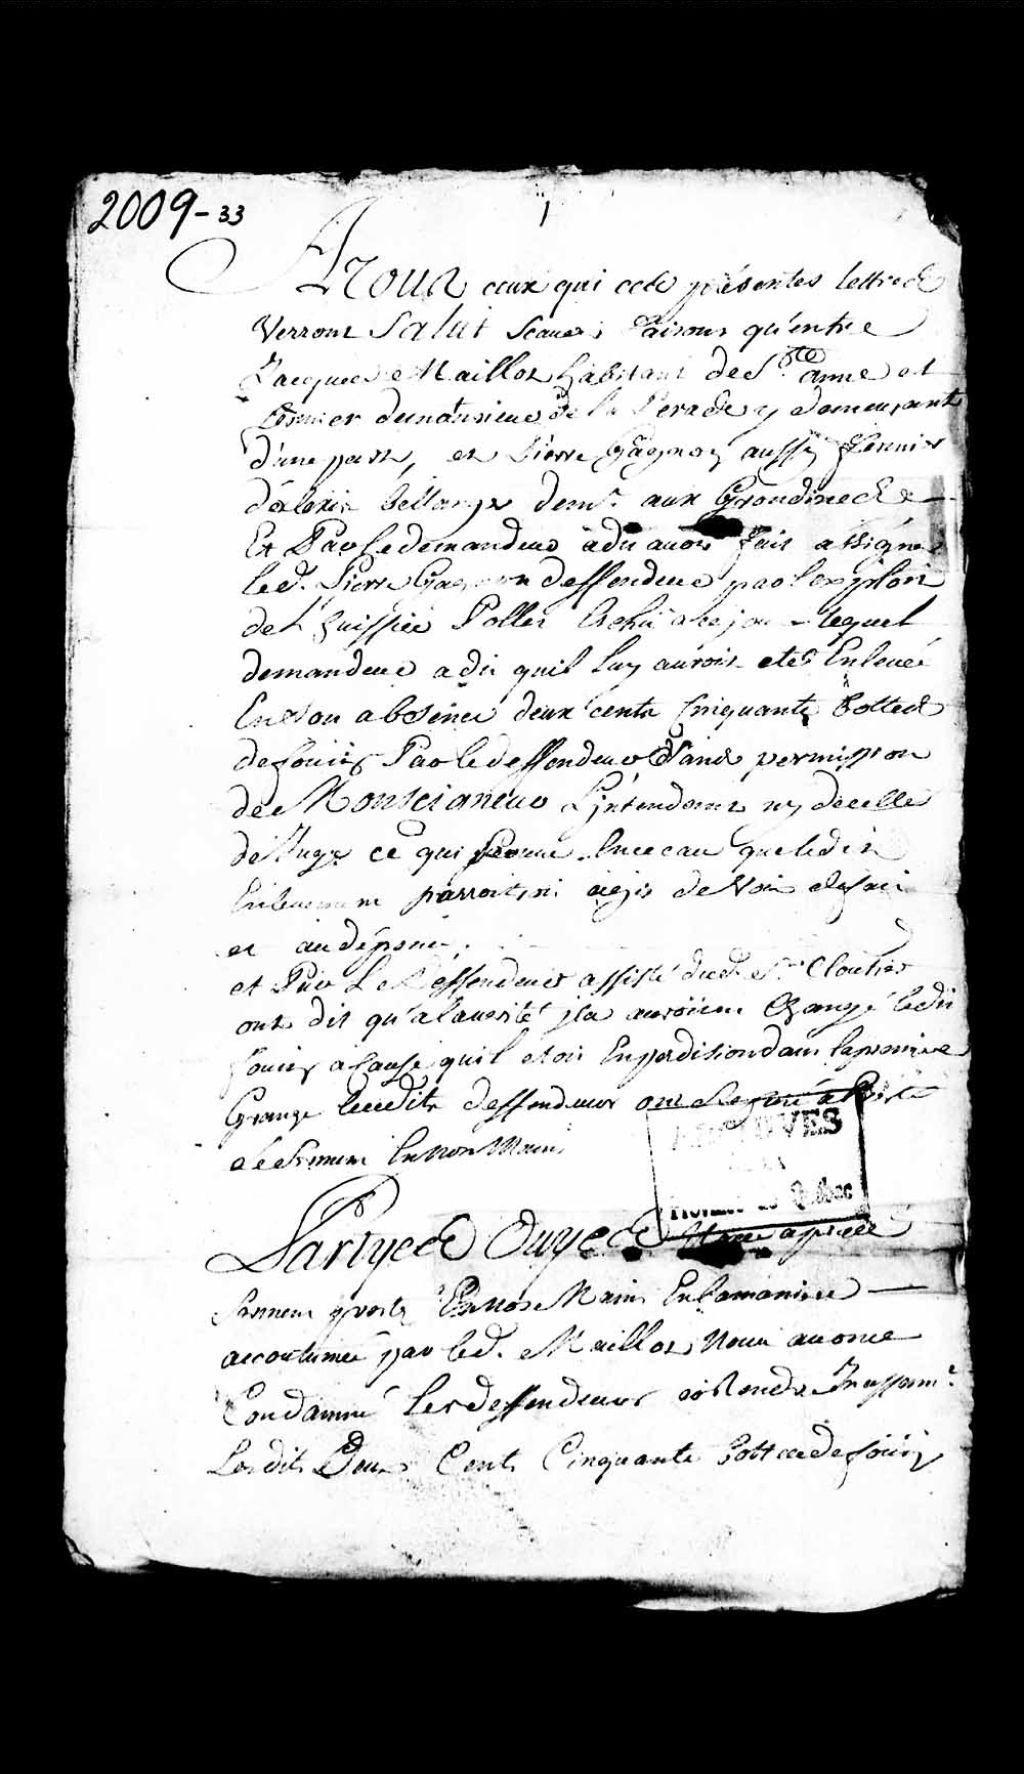 2009-33
1
A Tous ceux qui ces présentes lettres
Verront Salut scavoir faisons qu'entre
Jacques Maillot habitant de Ste anne et
fermier du moulin de la Perade y demeurant
d'une part, et Pierre Gagnon aussy fermier
d'alexis bellanger demt. aux Grondines
Et Par le demandeur a dit avoir fait assigner
led. Pierre Gagnon deffendeur par l'exploit
de l'huissier Pollet a ce jour lequel
demandeur a dit quil luy auroit eté Enlevée
En son absence deux cents cinquante Bottes
de foüin Par le deffendeur sans permission
de Monseigneur L'jntendant ny de celle
de Juge ce qui
et au dépens.
et Par Le deffendeur assisté dud. Sr. Cloutier
ont dit qu'a la verité jls auroient changé ledit
foüin a cause quil etoit En perdision dans la premiere
Grange lesdits deffendeurs ont
le serment En nos Mains
ARCHIVES
DE LA
Province de Québec
Partyes Ouyes et apres
serment presté En nos Mains En la maniere
accoutumée par led. Maillot Nous avons
Condamné les deffendeurs a rendre Jncessamt.
Lesdits Deux Cents Cinquante Bottes de foüin